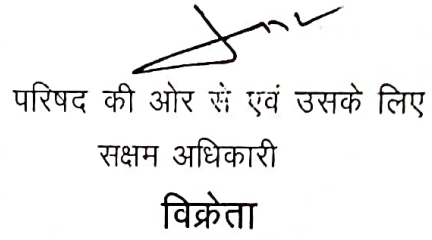 परिषद की ओर से एवं उसके लिए
सक्षम अधिकारी
विक्रेता